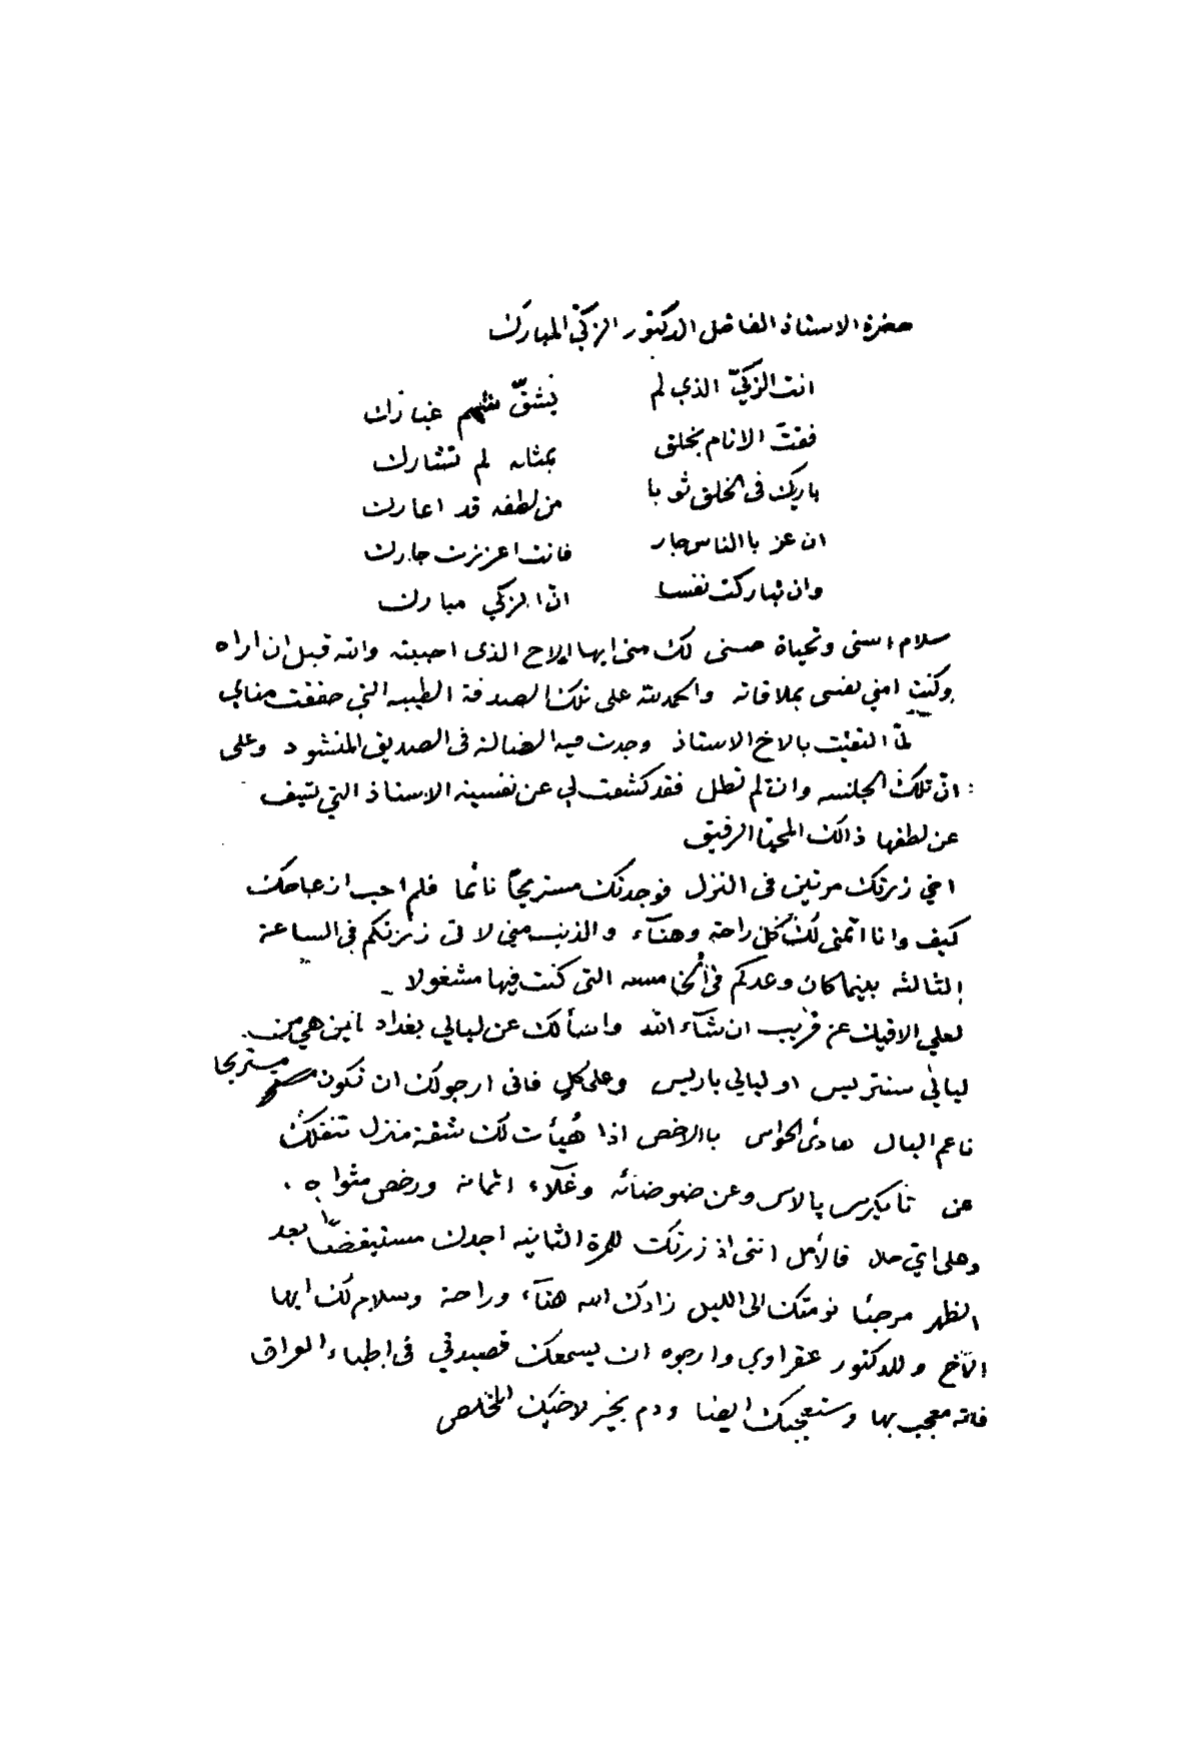 حضرة الاستاذ الفاضل الدكتور الزكيّ المبارك
انت الزكيّ الذي لم يشقّ شهم غبارك
فقتَ الانام بخلق بمثله لم تشارك
باريك في الخلق ثوبا من لطفه قد اعارك
ان عز باالناس جار فانت اعززت جارك
وان تباركت نفسا انّ الزكي مبارك
سلام اسنى وتحياة حسنى لك مني ايها الاخ الذى احببته والله قبل ان اراه
وكنت امني نفسى بملاقاته والحمد لله على تلك الصدفة الطيبه التي حققت مناي
لمّا التقيت بالاخ الاستاذ وجدت فيه الضالة فى الصديق المنشود وعلى
انّ تلك الجلسه وان لم تطل فقد كشفت لي عن نفسية الاستاذ التي يشف
عن لطفها ذالك المحيّا الرقيق
اخي زرتك مرتين فى النزل فوجدتك مستريحاً نائما فلم احب ازعاجك
كيف وانا اتمنى لك كل راحة وهنآء والذنب مني لاني زرتكم في الساعة
الثالثه بينما كان وعدكم في الخامسه التى كنت فيها مشغولا
لعلي الاقيك عن قريب ان شآء الله واسألك عن ليالي بغداد اين هي من
ليالي سنتريس او ليالي باريس وعلى كلٍ فانى ارجو لك ان تكون مستريحا
ناعم البال هادئ الحواس باالاخص اذا هُيأت لك شقة منزل تنقلك
عن تايكرس پالاس وعن ضوضائه وغلآء اثمانه ورخص مثواه .
وعلى اي حال فالأمل انني اذ زرتك للمرة الثانيه اجدك مستيقضًا بعد
الظهر مرجئا نومتك الى الليل زادك الله هنآء وراحة وسلام لك ايها
الأخ وللدكتور عقراوي وارجوه ان يسمعك قصيدتي في اطباء العراق
فانه معجب بها وستعجبك ايضا ودم بخير لاخيك المخلص